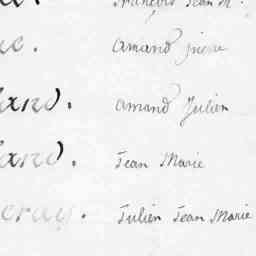 François Jean M.
e. Amand pierre
and. Amand Julien
and. Jean Marie
eray. Julien Jean Marie